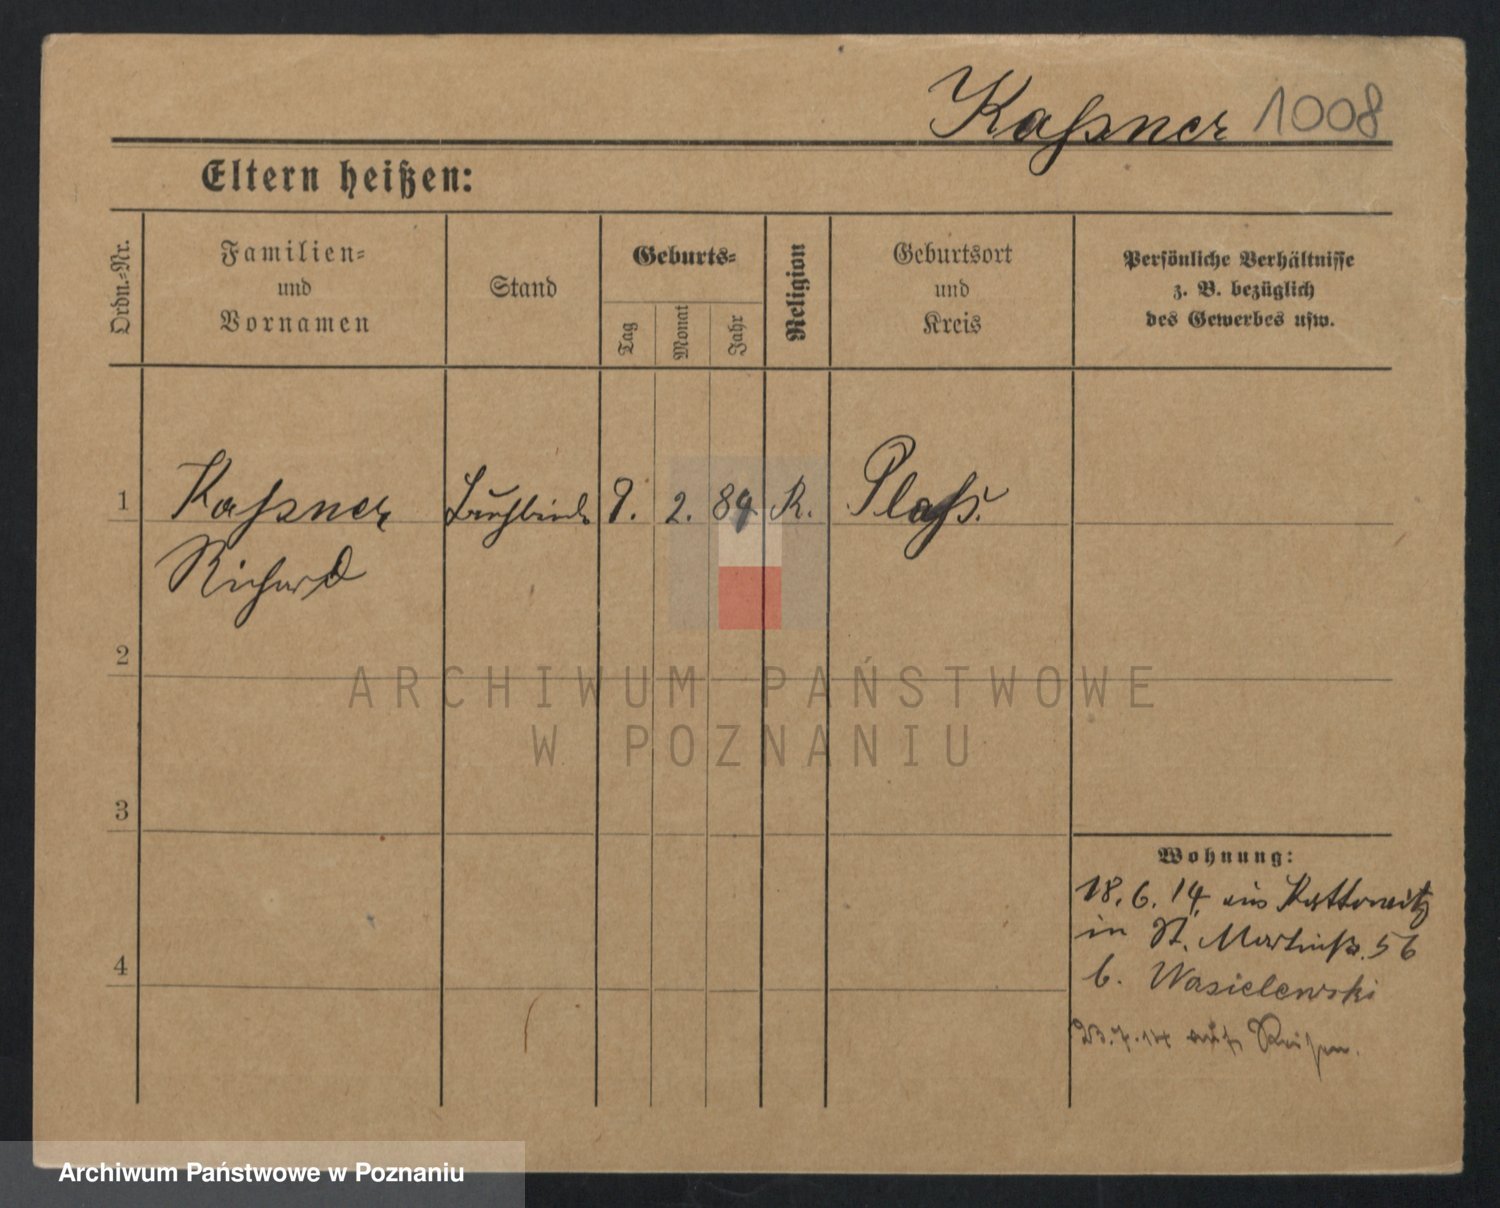 Kaßner 1008
Eltern heißen:
Ordn.-Nr.
Familien-
und
Vornamen
Stand
Geburts-
Tag
Monat
Jahr
Religion
Geburtsort
und
Kreis
Persönliche Verhältnisse
z. B. bezüglich
des Gewerbes usw.
1 Kaßner Buchbinder 8. 2. 84 K.
Richard
2
3
4
Wohnung:
18. 6. 14 aus Kattowitz
in St. Martinstr. 56
b. Wasielewski
23.7.14 auf Reisen.
ARCHIWUM PAŃSTWOWE
W POZNANIU
Archiwum Państwowe w Poznaniu